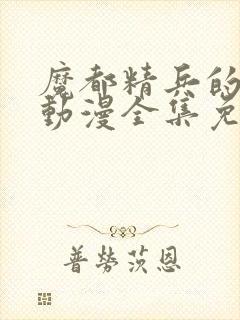 魔都精兵的
動漫全集免
普勞茨恩